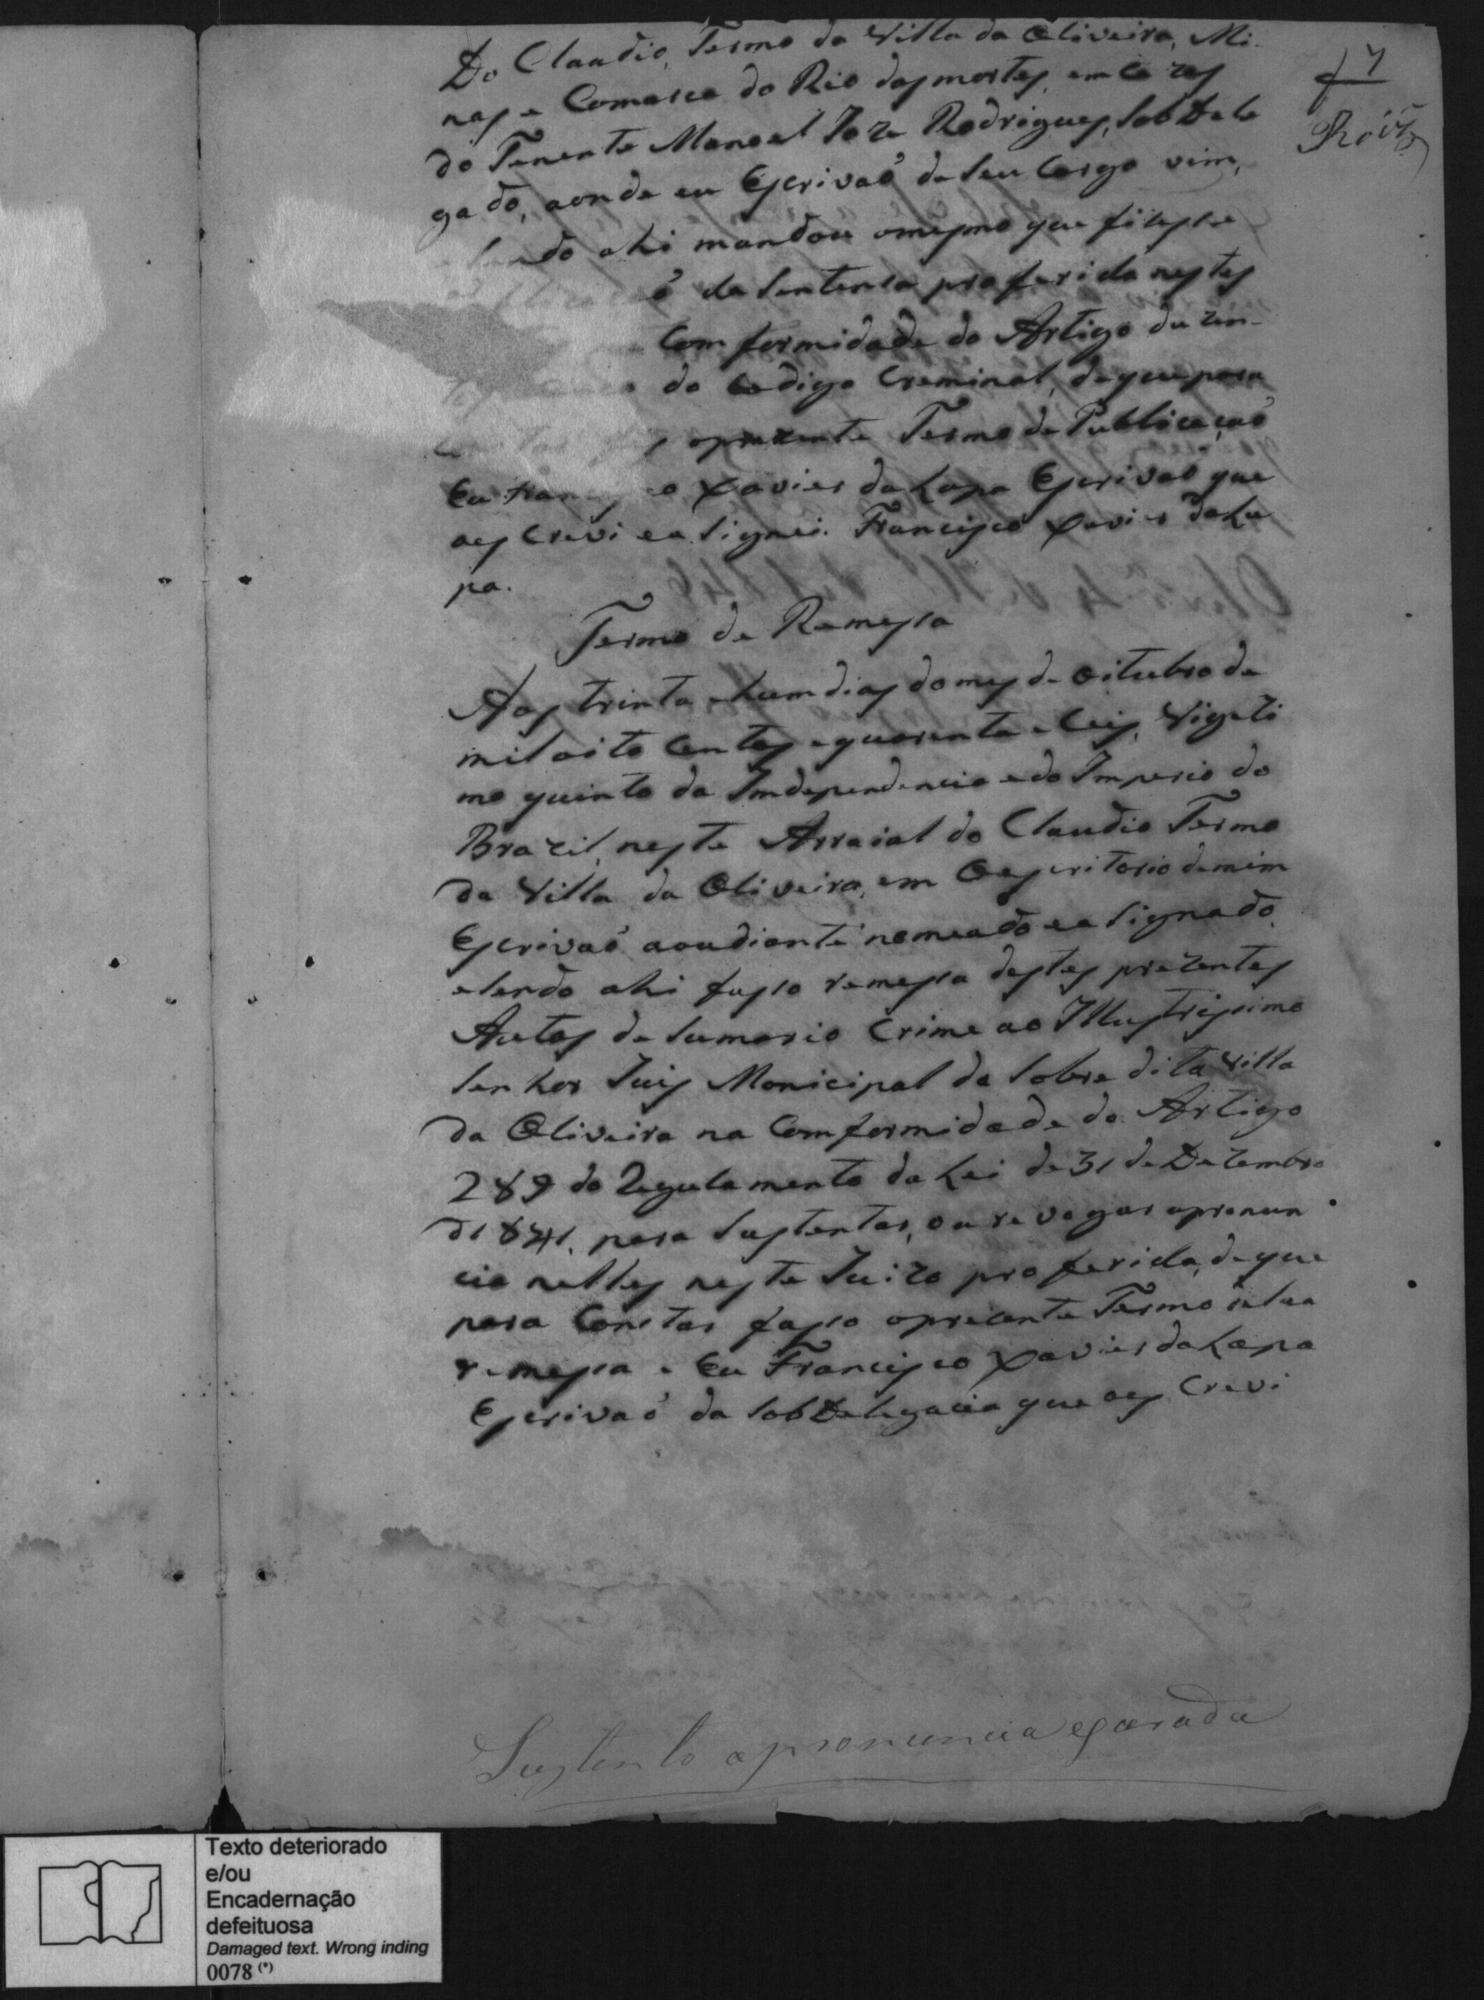 Do Claudio, Termo da Villa da Oliveira, Mi-
nas e Comarca do Rio das mortes, em Cazas
do Tenente Manoel Joze Rodrigues, SobDele
gado, aonde eu Escrivaõ de seu Cargo vim,
sendo ahi mandou omesmo que fizesse
da Sentença proferida nestes
Comformidade do Artigo duzen-
do Codigo Creminal, de que para
oprezente Termo de Publicaçaõ
Eu Francisco Xavier da Lapa Escrivaõ que
oes Crevi e a Signei. Francisco Xavier da La
pa.
Termo de Remessa
Aos trinta ehum dias do mes de Oitubro de
mil oito Centos e quarenta e Ceis, Vigeci
mo quinto da Independencia e do Imperio do
Brazil, neste Arraial do Claudio Termo
da Villa da Oliveira, em Oescritorio demim
Escrivaõ aoudiante nomeado e a Signado,
e Sendo ahi fasso remessa destes prezentes
Autos de Sumario Crime ao Illustrissimo
Senhor Juis Monicipal da Sobre dita Villa
da Oliveira na Comformidade do Artigo
289 do Regulamento da Lei de 31 de Dezembro
d1841, para Sustentar, ou revogar apronun
cia nelles neste Juizo proferida, de que
para Constar fasso oprecente Termo
remessa e Eu Francisco Xavier da Lapa
Escrivaõ da SobDelegacia que oes Crevi
Sustento apronuncia exarada
Texto deteriorado
e/ou
Encadernação
defeituosa
Damaged text. Wrong inding
0078 (*)